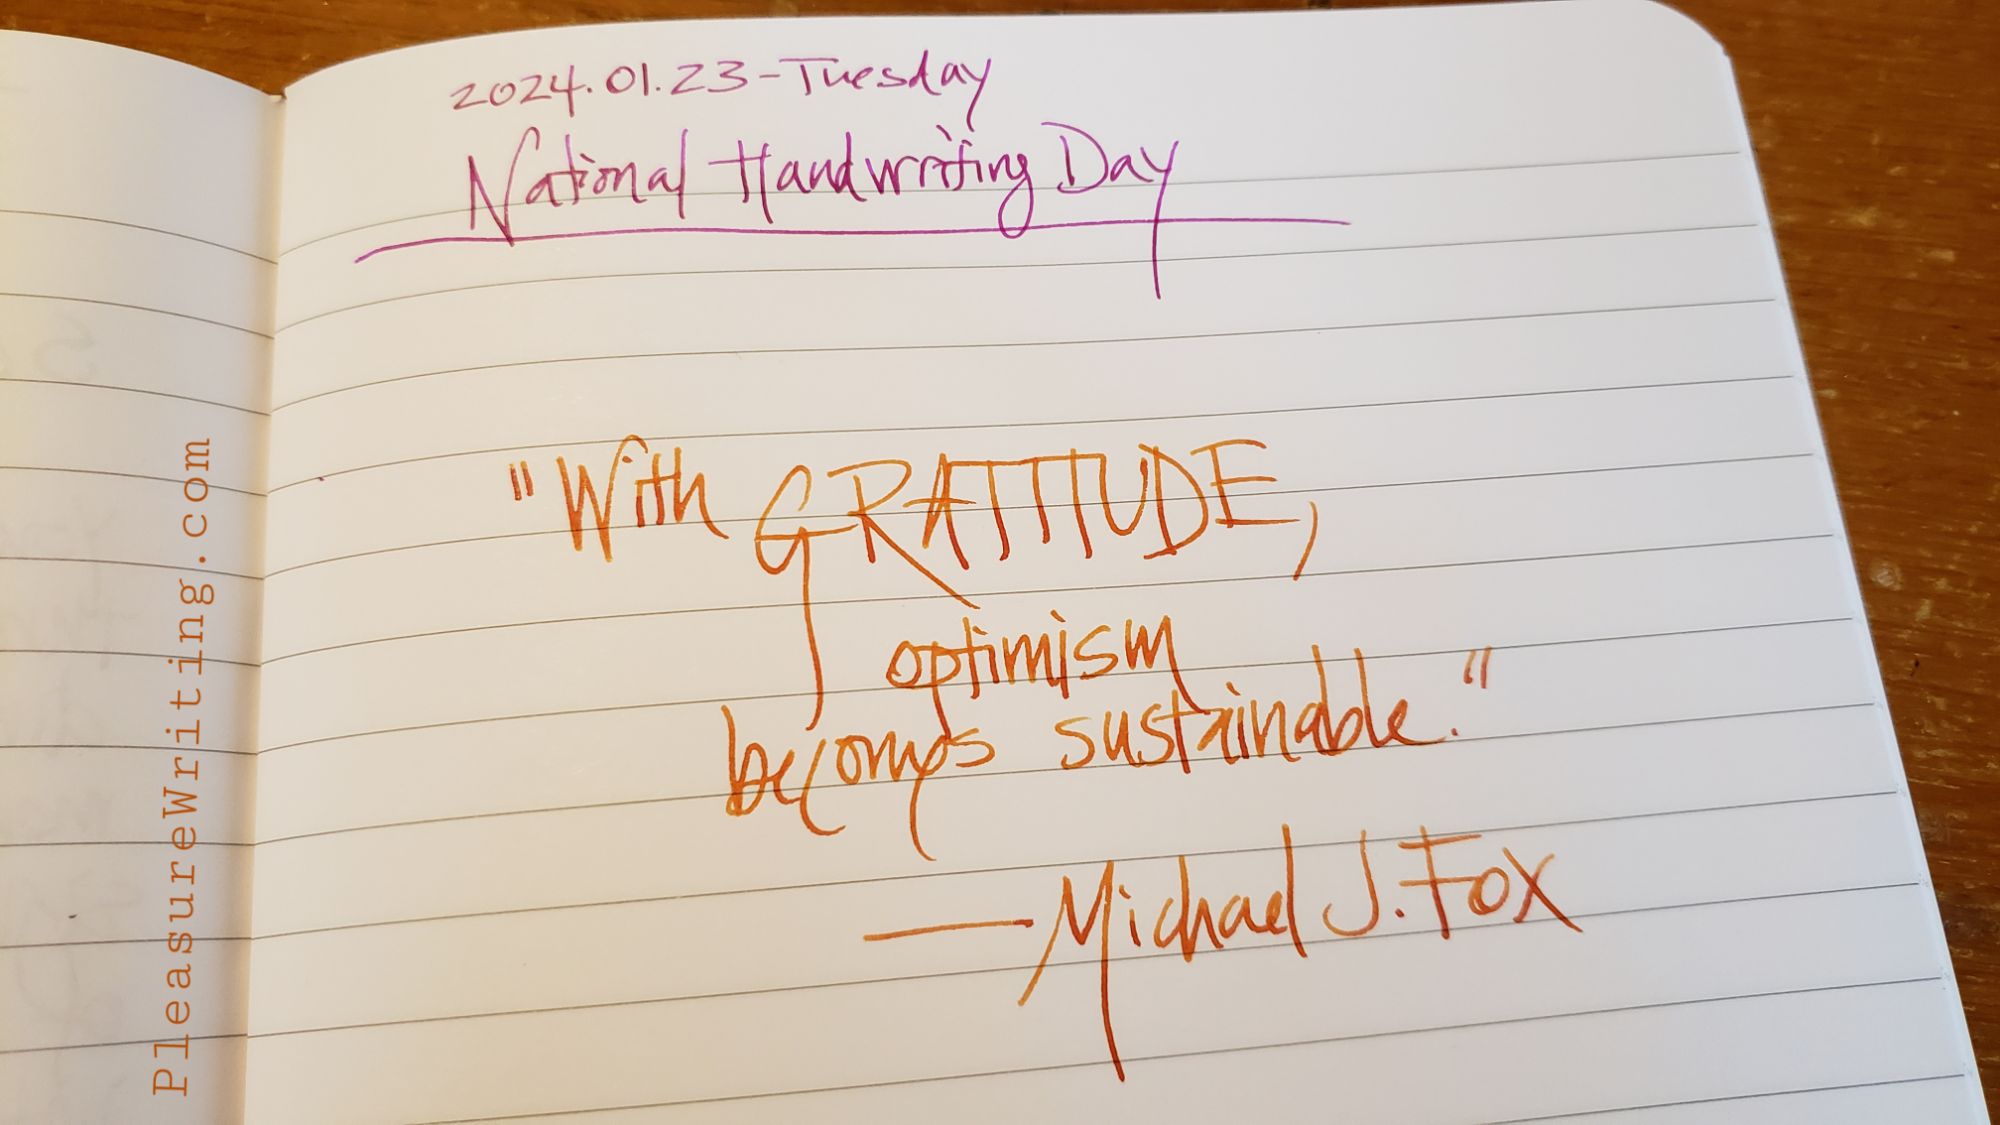 2024.01.23-Tuesday
National Handwriting Day
"With GRATITUDE,
optimism
becomes sustainable."
—Michael J. Fox
PleasureWriting.com